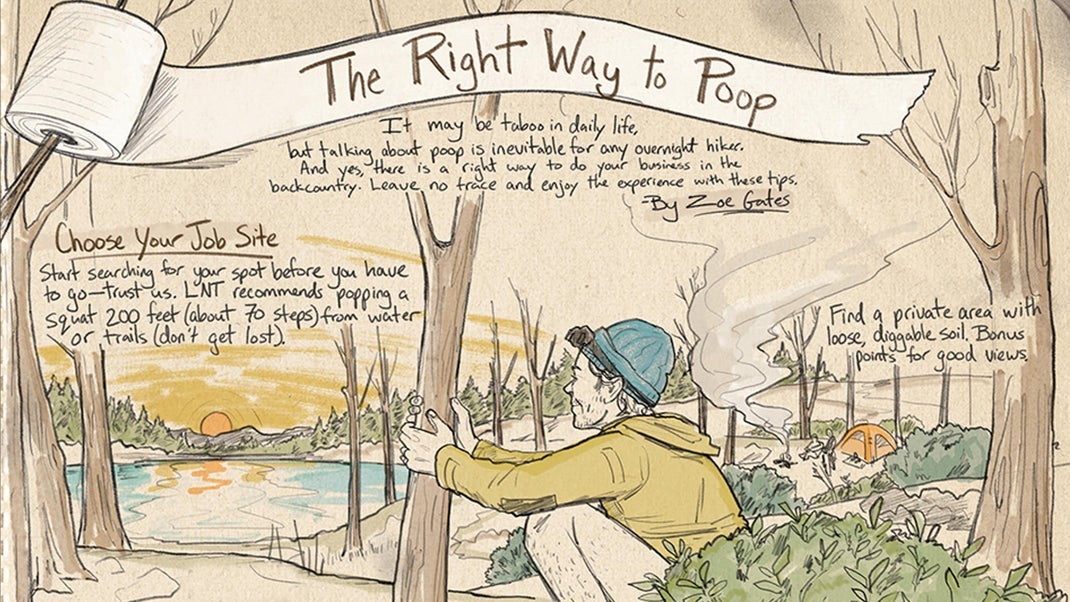 The Right Way to Poop
It may be taboo in daily life,
but talking about poop is inevitable for any overnight hiker.
And yes, there is a right way to do your business in the
backcountry. Leave no trace and enjoy the experience with these tips.
-By Zoe Gates
Choose Your Job Site
Start searching for your spot before you have
to go—trust us. LNT recommends popping a
squat 200 feet (about 70 steps) from water
or trails (don't get lost).
Find a private area with
loose, diggable soil. Bonus
points for good views.